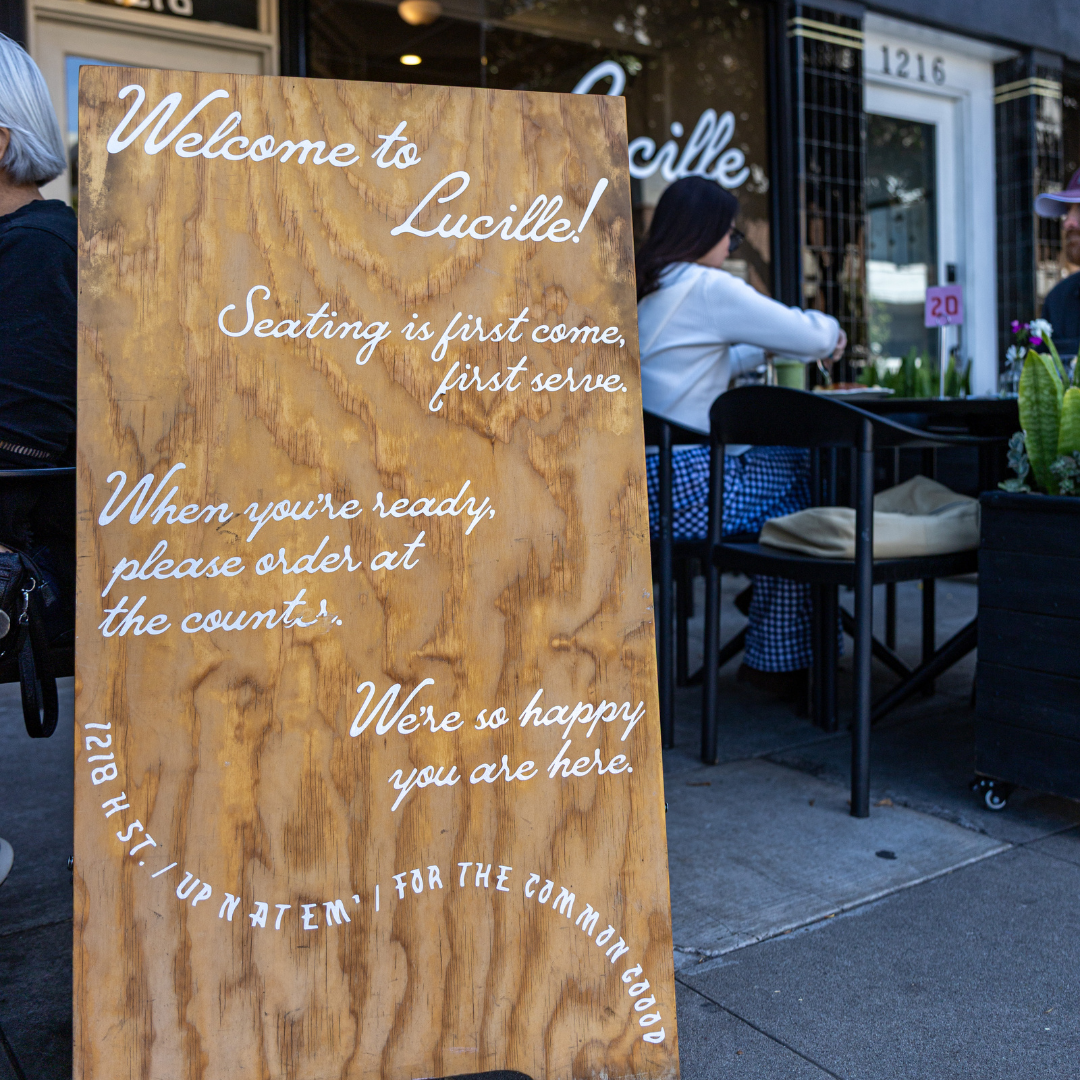 Welcome to
Lucille!
Seating is first come,
first serve.
When you're ready,
please order at
the counter.
We're so happy
you are here.
1218 H ST. / UP N AT EM' / FOR THE COMMON GOOOD
1216
20